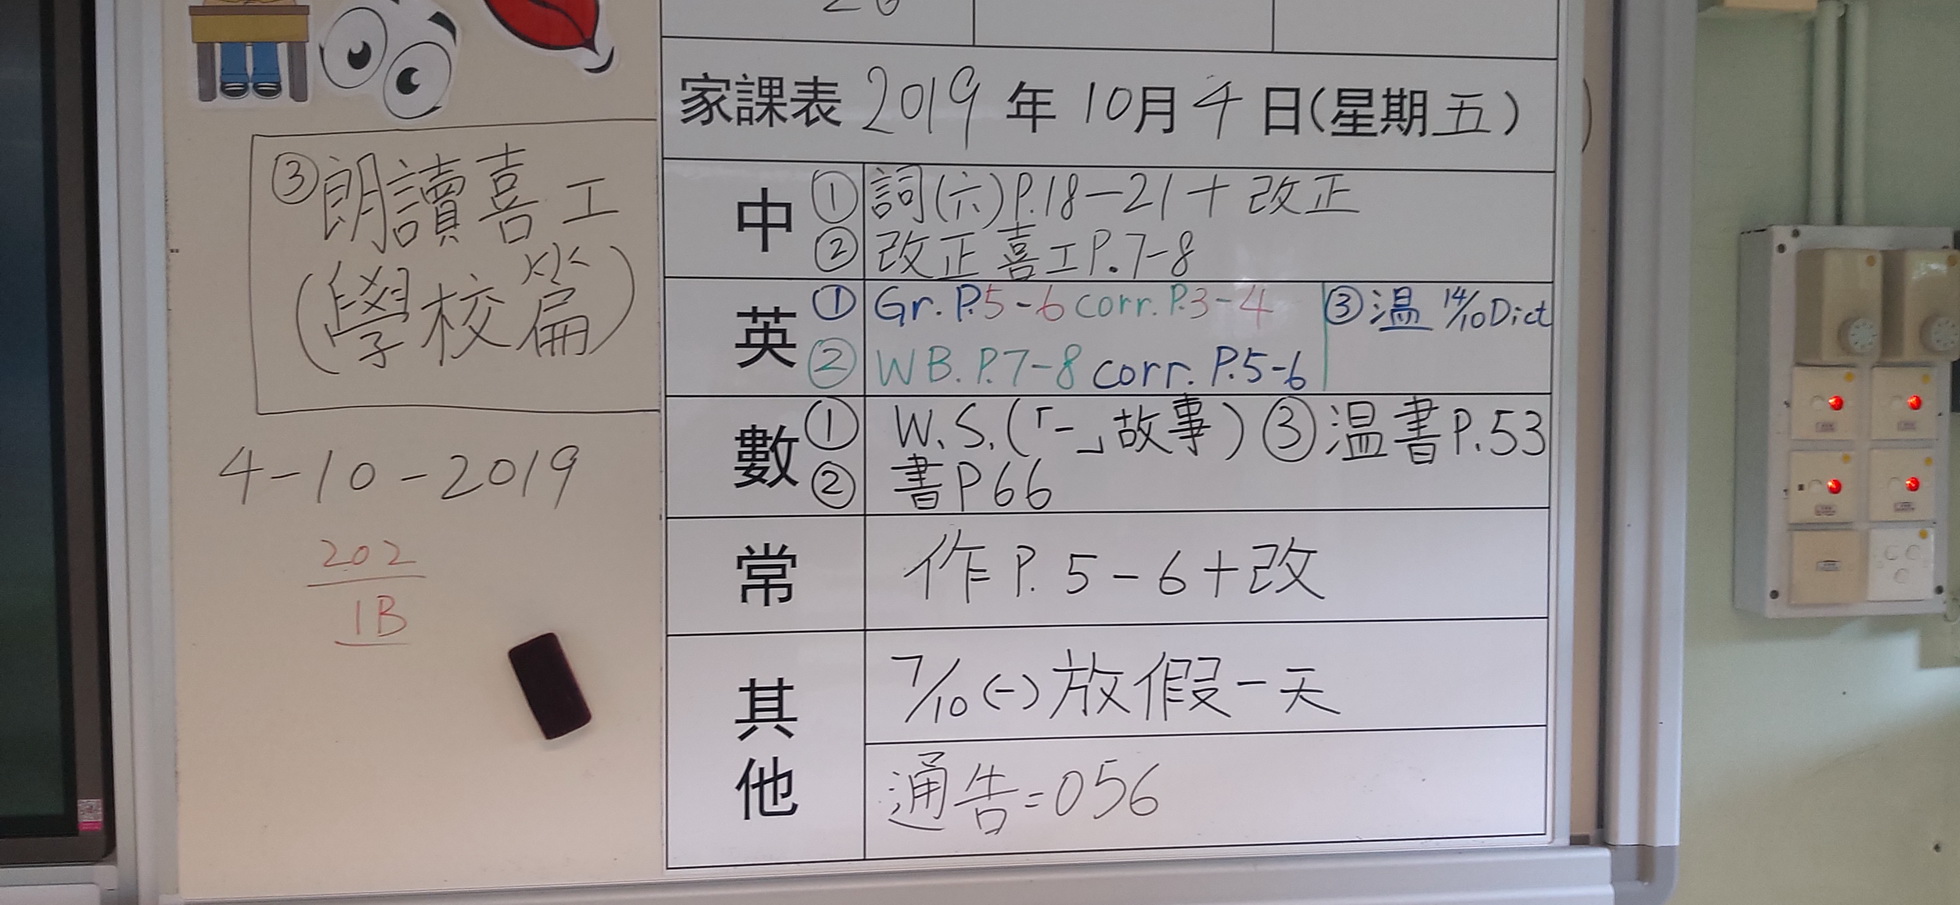 家課表 2019 年 10月 4 日(星期五)
③朗讀喜工
(學校篇)
中 ① 詞(六)P.18-21+改正
② 改正喜工P.7-8
英 ① Gr. P.5-6 corr. P.3-4 ③温 14/10 Dict
② WB. P.7-8 corr. P.5-6
數 ① W.S.(「-」故事) ③温書P.53
② 書P66
4-10-2019
202
1B
常 作P. 5-6+改
其他 7/10(一)放假一天
通告=056